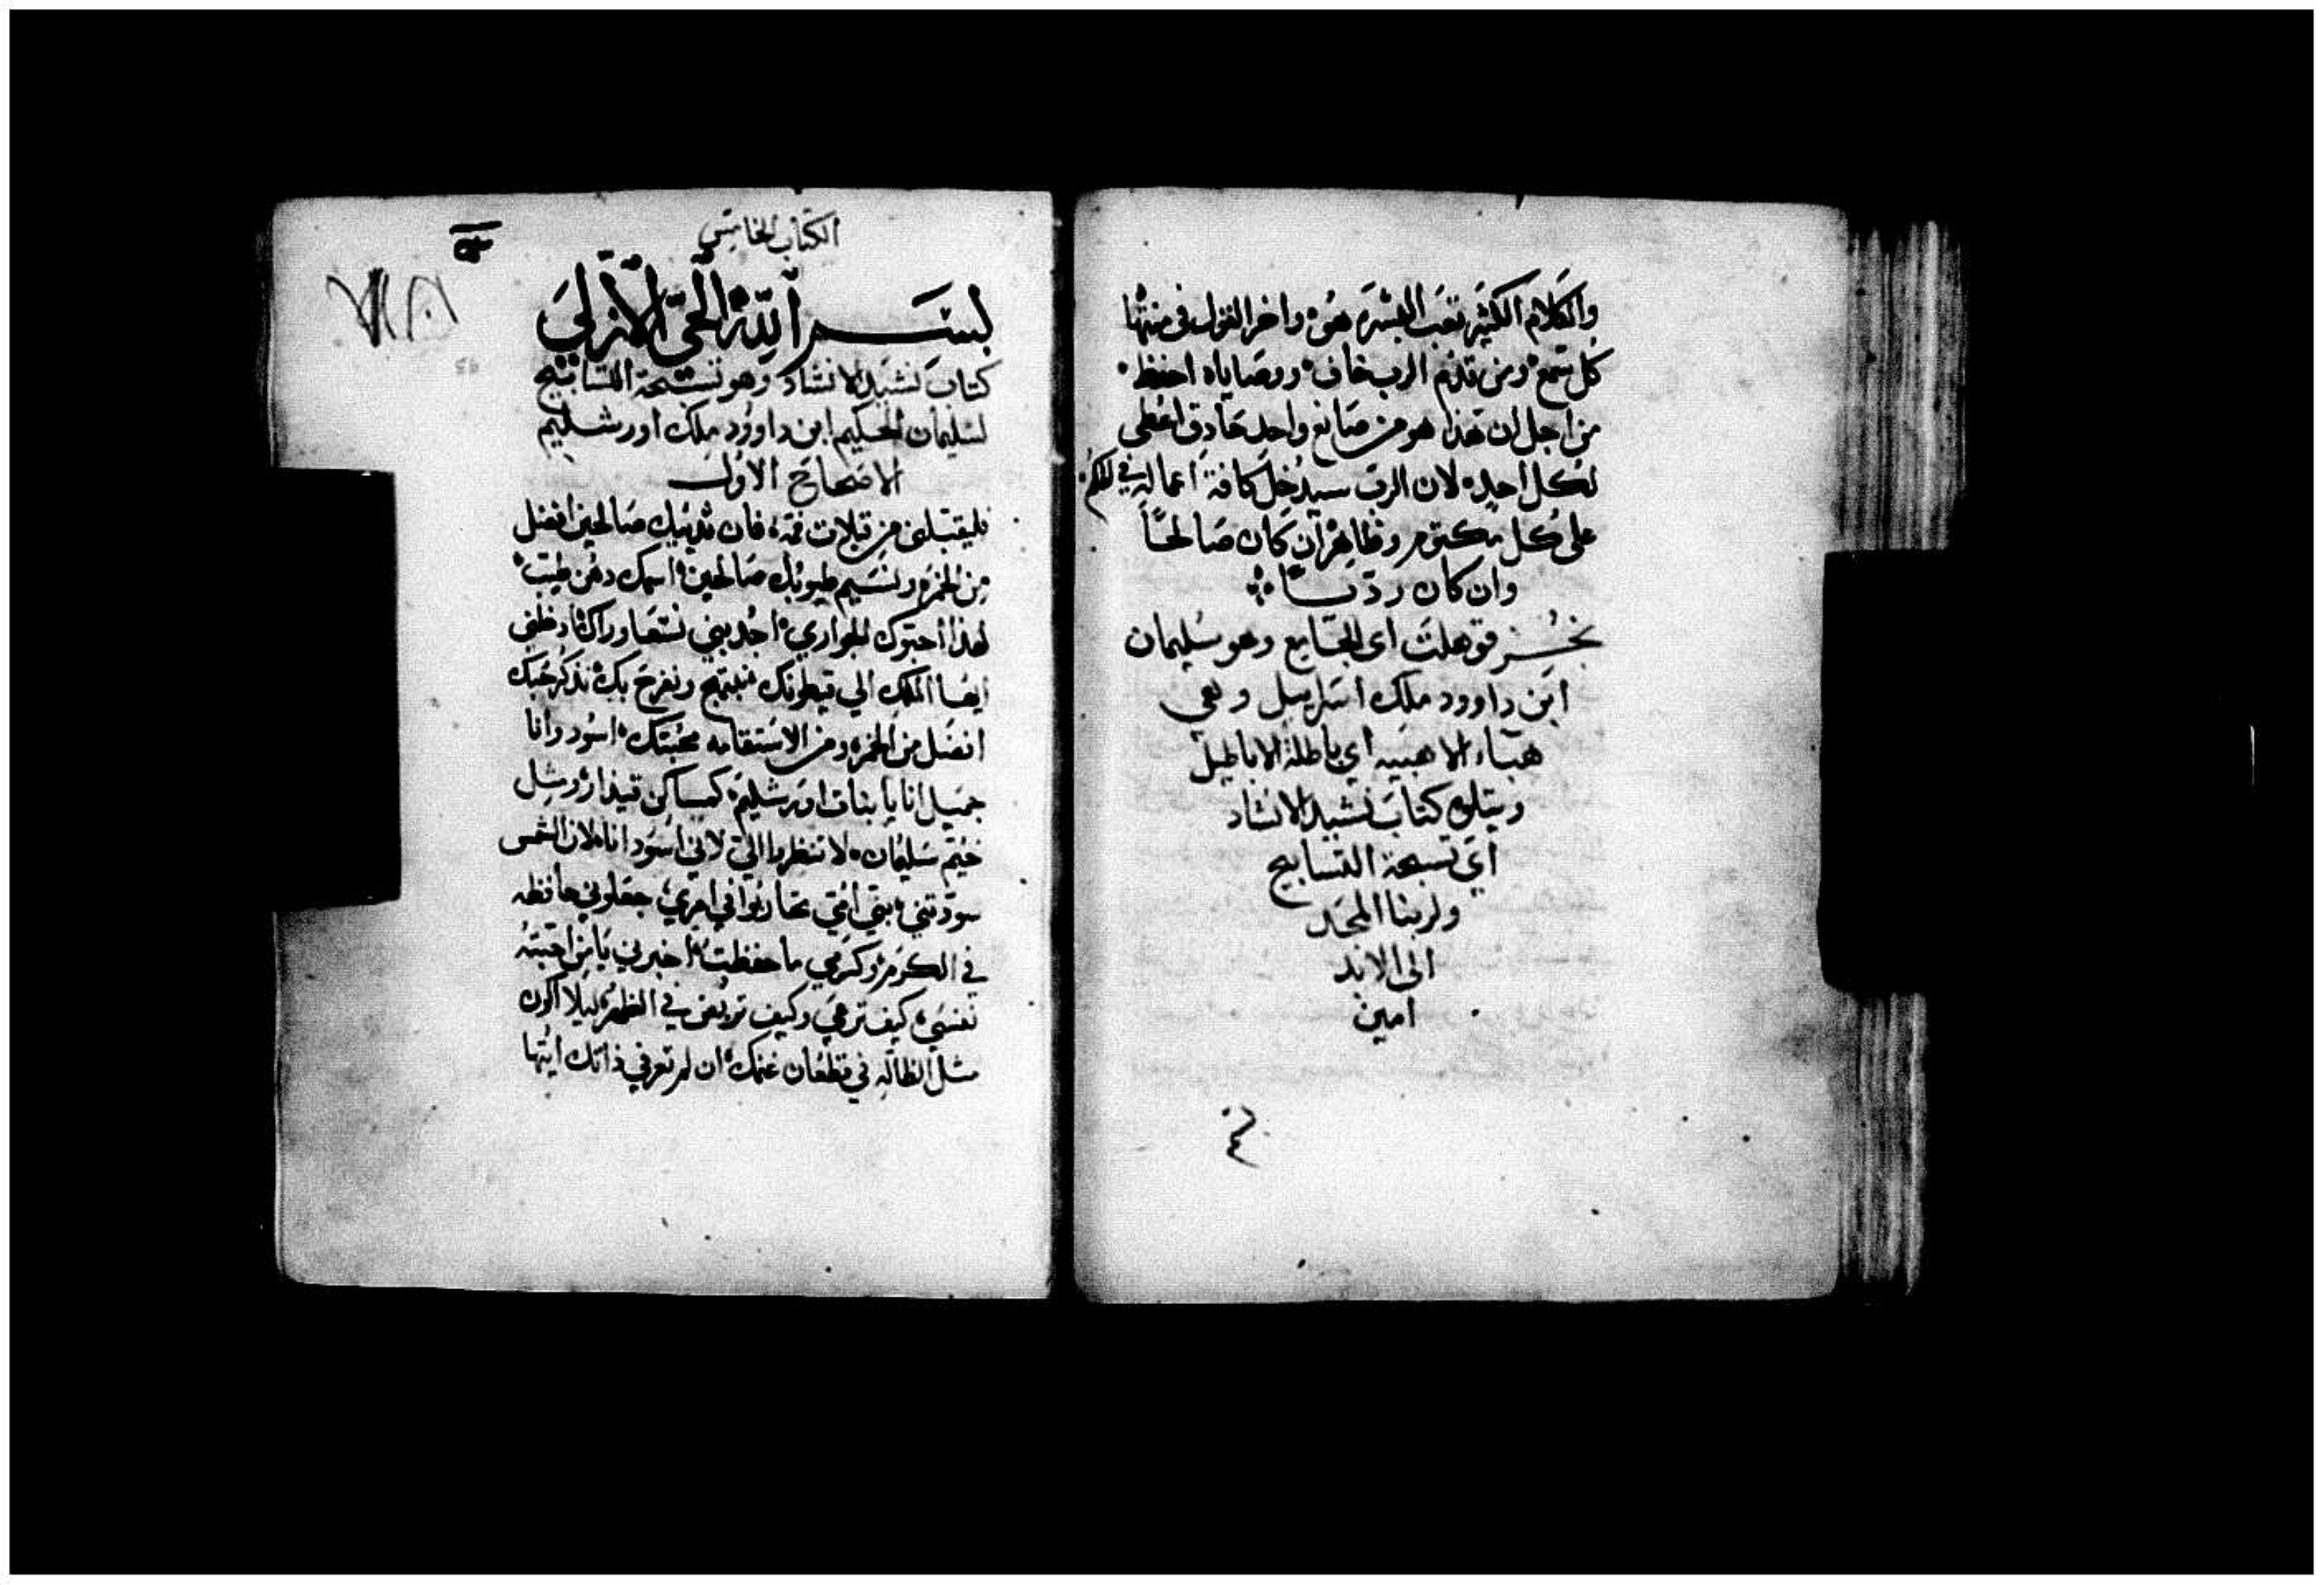 والكلام الكثير تعب البشره هو واخر القول في منتها
كل تسمع ومن قدم الرب خاف ووصاياه احفظ
من اجل ان هذا هو من صانع واحد حادق اعطى
لكل احد لان الرب سيدخل كافة اعماله في الحكم
على كل مكتوم وظاهر ان كان صالحًا
وان كان رديًا
نجز قوهلت اى الجامع وهو سليمان
ابن داوود ملك اسراييل وهي
هباء الاهبيه اي باطلة الاباطيل
ويتلوه كتاب نشيد الانشاد
اي تسبحة التسابيح
ولربنا المجد
الى الابد
امين
الكتاب الخامس
بسم الله الحي الازلي
كتاب نشيد الانشاد وهو تسبحة التسابيح
لسليمان الحكيم ابن داوود ملك اورشليم
الاصحاح الاول
فليقبلني من قبلات فمه فان ثدييك صالحين افضل
من الخمره ونسيم طيوبك صالحين اسمك دهن طيب
لهذا احبوك الجواري اجدبيني نسعا وراك ادخلني
ايها الملك الي قيطونك نبتهج ونفرح بك نذكر حبك
افضل من الخمره ومن الاستقامه محبتك اسود وانا
جميل انا يا بنات اورشليم كمساكن قيذار ومثل
خيم سليمان لا تنظروا الي لاني اسود انا لان الشمس
سودتني بني امي تحاربوا في امري جعلوني حافظه
في الكرم وكرمي ما حفظت اخبرني يا من احبته
نفسي كيف ترعى وكيف تربض في الظهر ليلا اكون
مثل الظاله في قطعان غنمك ان لم تعرفي ذاتك ايتها